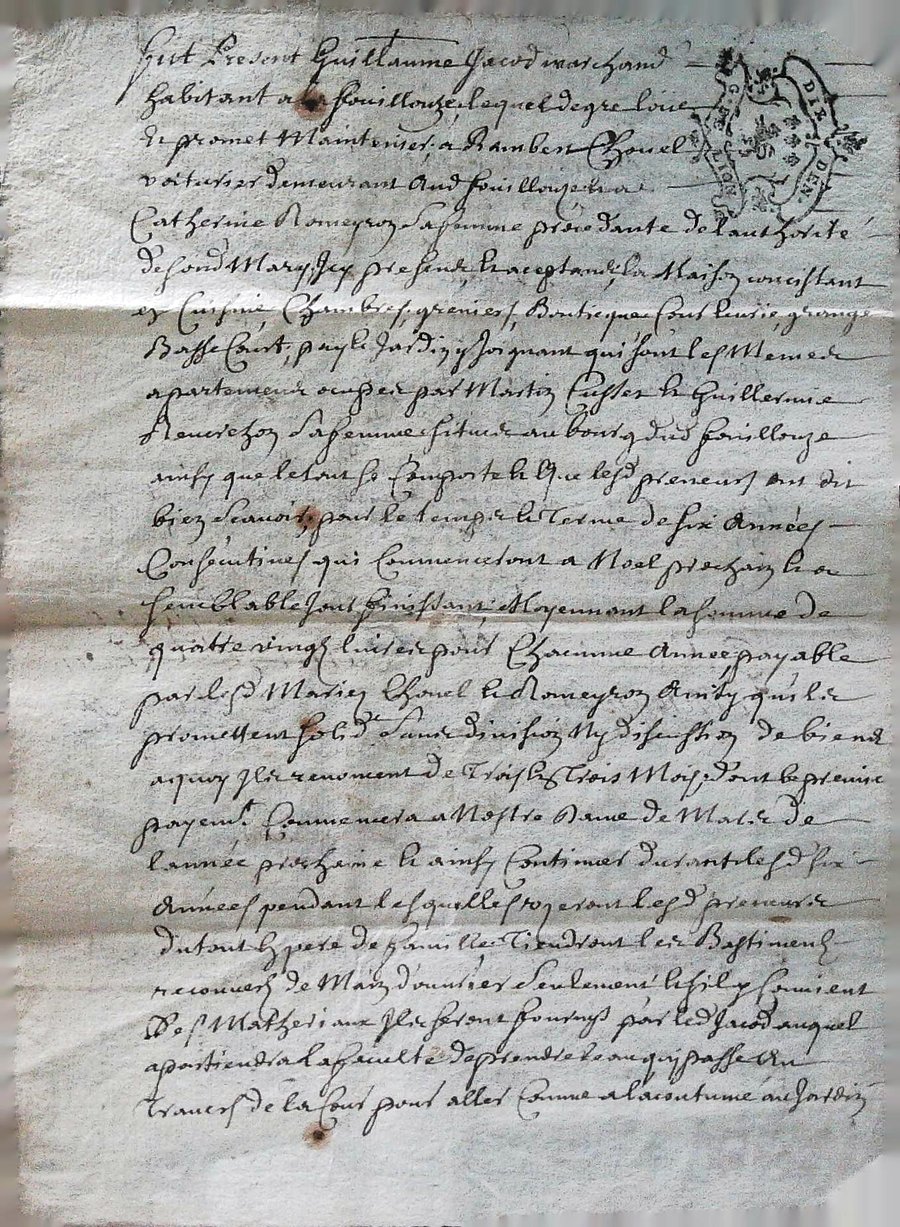 Fut Present Guillaume Jacod marchand
habitant a la fouillouze, lequel de gre loüe
Et promet Maintenir, a Rambert Chovel
voiturier demeurant aud fouillouze et a
Catherine Romeyron sa femme procedante de l'authorité
de sond Mary, Icy presens et aceptans, la Maison consistant
en Cuisine, Chambres, greniers, Bouticque Cour, grange
Basse Court, et Jardin y Joignant qui sont les Memes
apartemens ocupes par Martin Cusset et Guillermie
sa femme situes au bourg dud fouillouze
ainsy que le tout se Comporte et Que lesd preneurs ont dit
bien scavoir, pour le temps et Terme de six Années
Consecutives qui Commenceront a Noel prochain et a
semblable Jour finissant, Moyennant la somme de
quatre vingt livres pour Chacunne Année, payable
par lesd Mariez Chovel et Romeyron Ainsy qu'ils
promettent solid.t sans division Ny discussion de biens
aquoy Ils renoncent de Trois en Trois Mois, dont le premier
payem.t Commencera a Nostre Dame de Mars de
l'année prochaine et ainsy Continuer durant lesd six
Années pendant lesquelles lesd preneurs
du tout en pere de famille, Tiendront les Bastiments
recouvers de Main d'ouvrier seulement et s'il y convient
Des Matheriaux Ils seront fournis par led Jacod auquel
apartiendra la faculté de prendre l'eau qui passe Au
Travers de la Cour pour aller Comme a la coutume au Jardin
G.DE LION
DIE DEN.